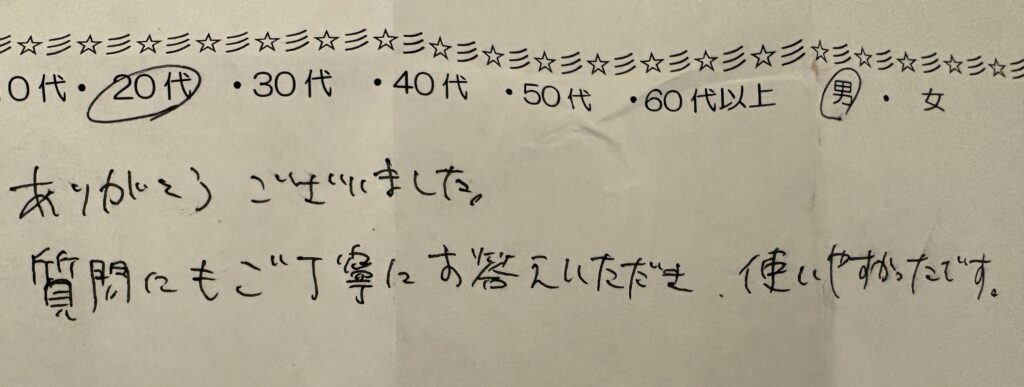 彡☆彡☆彡☆彡☆彡☆彡☆彡☆彡☆彡☆彡☆彡☆彡☆彡☆彡☆彡☆彡☆彡☆彡
0代・20代・30代・40代・50代・60代以上 男・女
ありがとうございました。
質問にもご丁寧にお答えいただき、使いやすかったです。